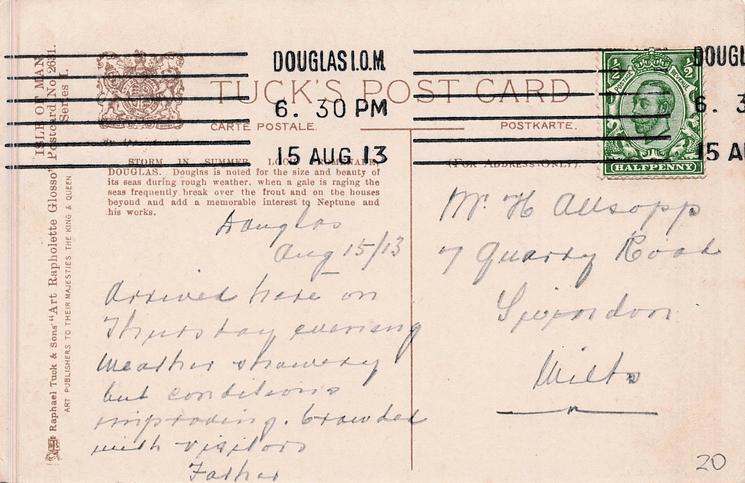 DOUGLAS I.O.M.
6. 30 PM
15 AUG 13
DOUGL
6. 3
15 AU
TUCK'S POST CARD
CARTE POSTALE.
POSTKARTE.
(FOR ADDRESS ONLY).
½ ½
POSTAGE
HALFPENNY
ISLE OF MAN
Postcard No. 2631.
Series I.
Raphael Tuck & Sons' "Art Rapholette Glosso"
ART PUBLISHERS TO THEIR MAJESTIES THE KING & QUEEN
STORM IN SUMMER, LOCH
DOUGLAS. Douglas is noted for the size and beauty of
its seas during rough weather, when a gale is raging the
seas frequently break over the front and on the houses
beyond and add a memorable interest to Neptune and
his works.
Douglas
Aug 15/13
Arrived here on
Thursday evening
Weather showery
but conditions
improving. Crowded
with visitors
Father
Mr. H Allsopp
7 Quarry Road
Swindon
Wilts
20